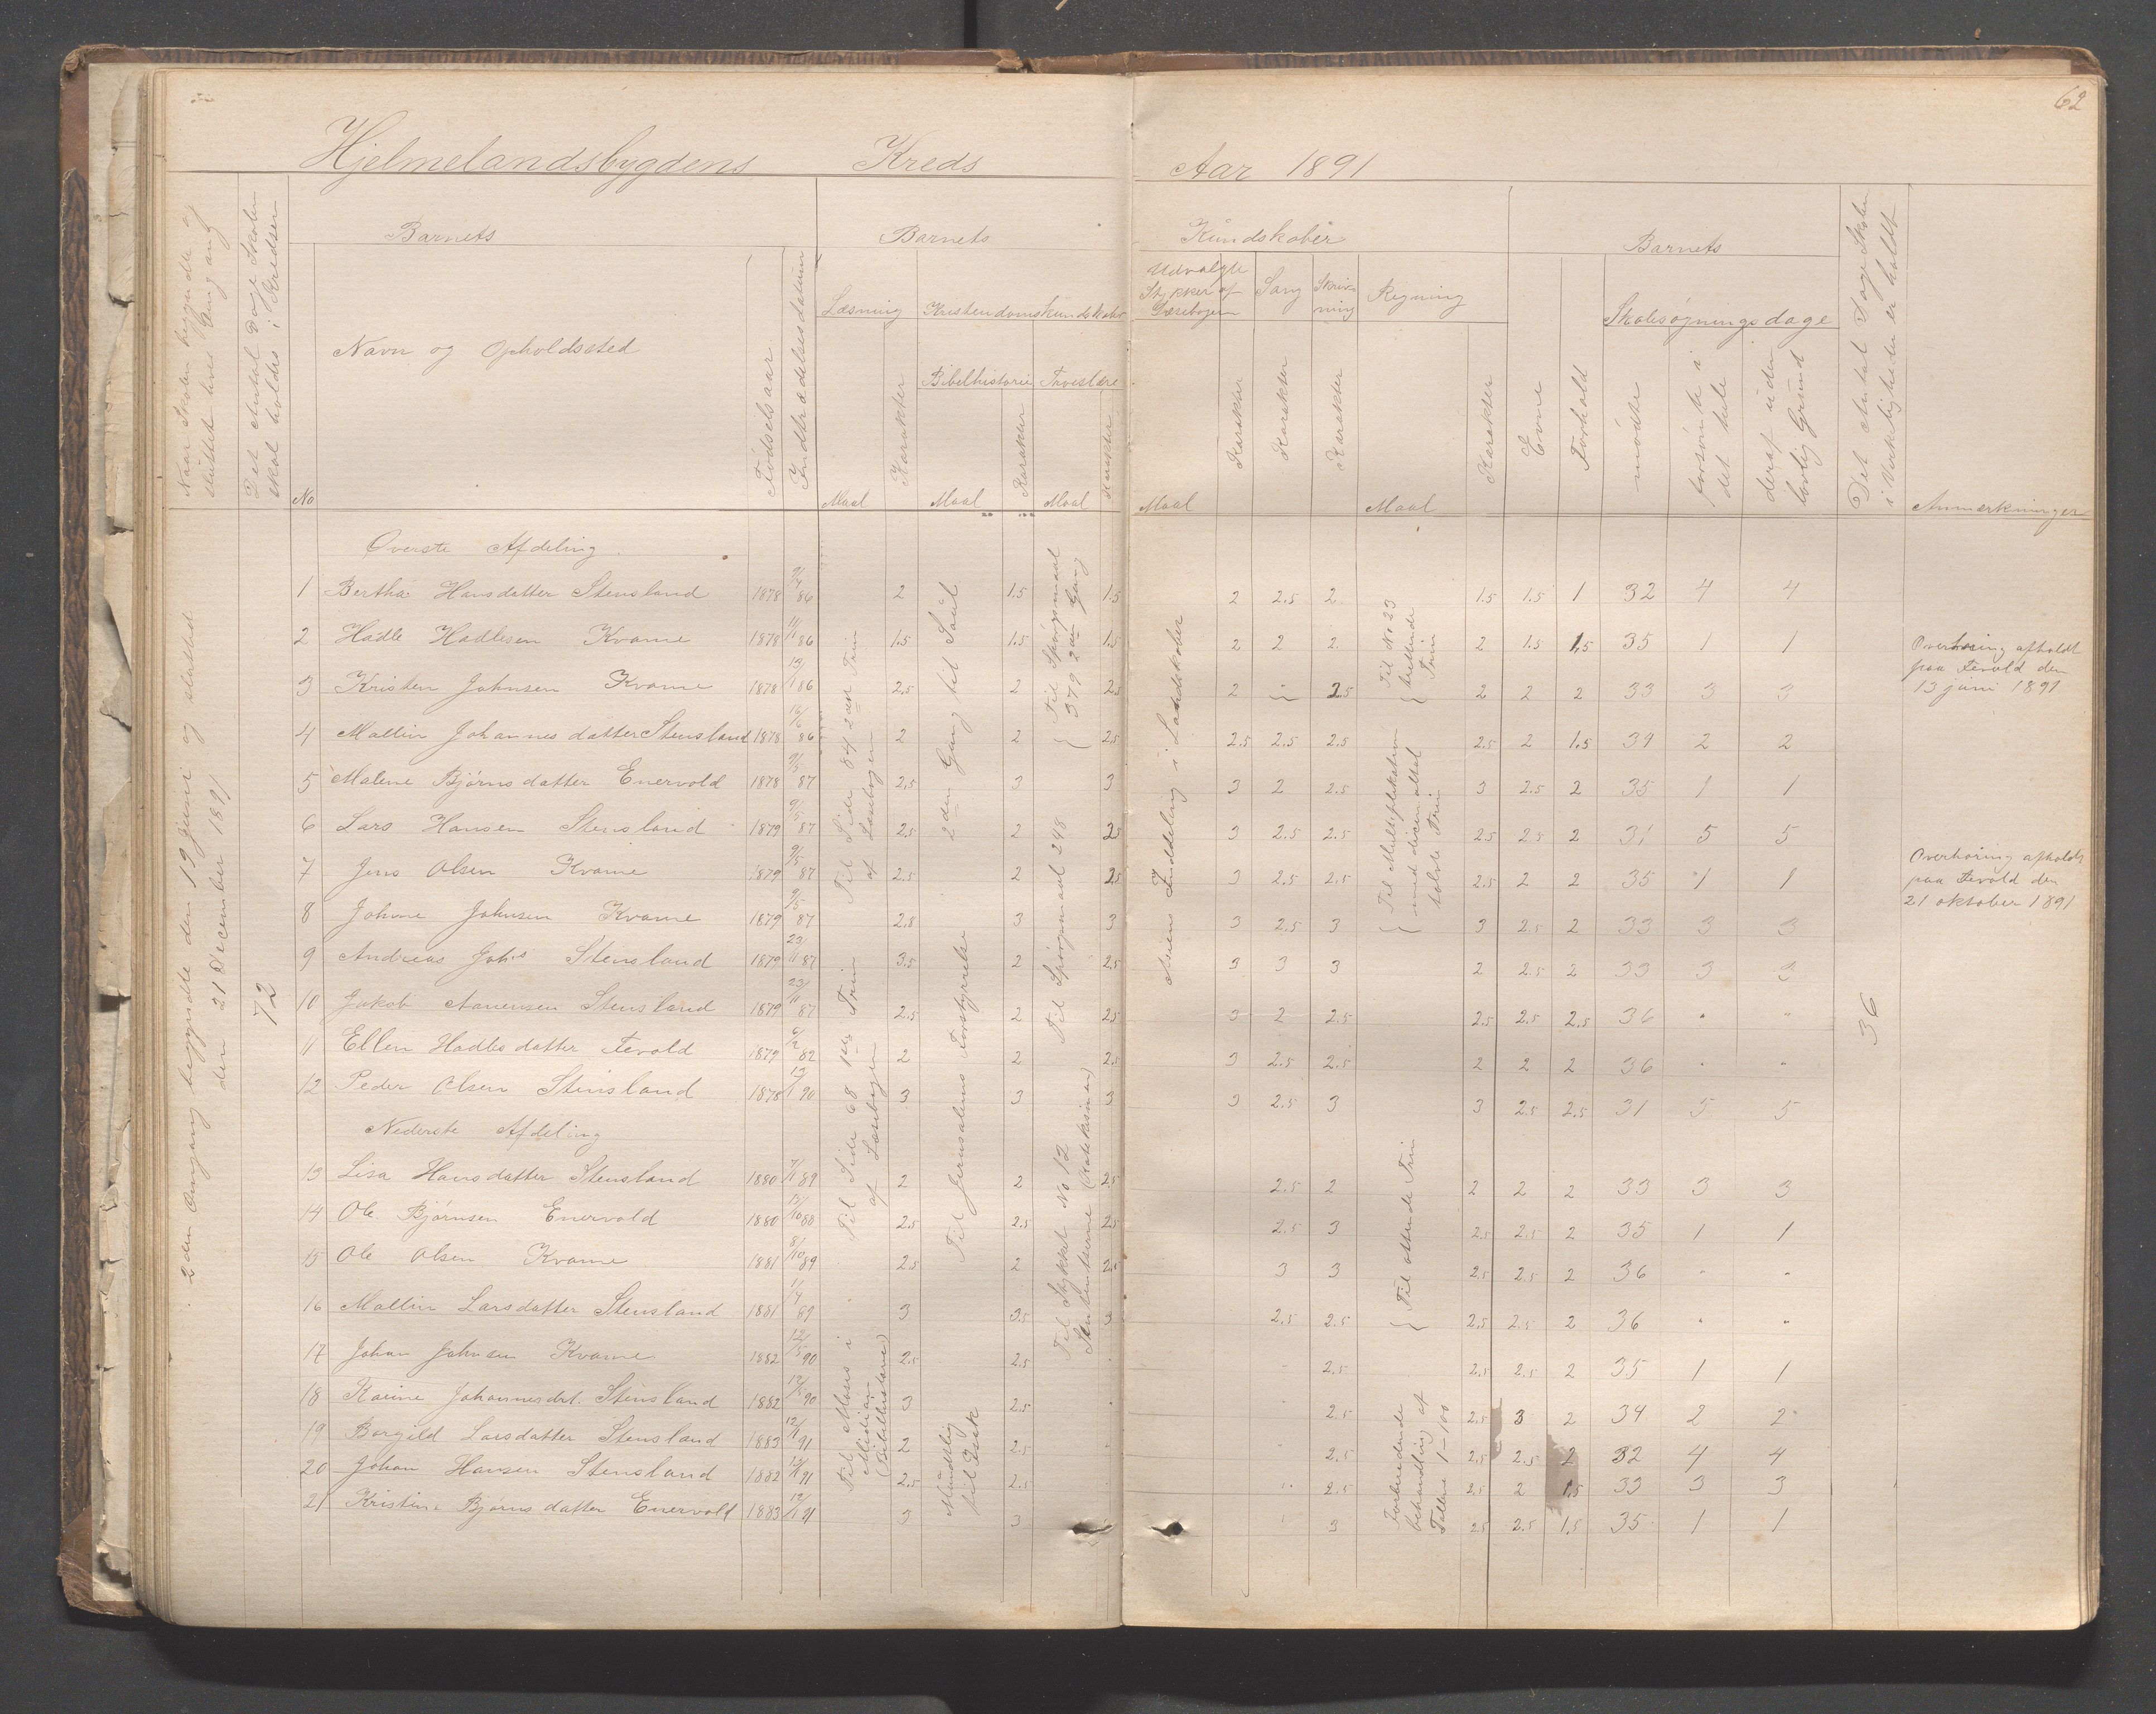 62
Hjelmelandsbygdens Kreds Aar 1891
Naar Skolen begyndte og
sluttet hver Omgang
Det Antal Dage Skolen
skal holdes i Kredsen
Barnets
Barnets
Kundskaber
Barnets
No
Navn og Opholdssted
Fødselsaar
Indtrædelsesdatum
Læsning
Kristendomskundskaber
Bibelhistorie
Troeslære
Maal
Karakter
Maal
Karakter
Maal
Karakter
Udvalgte
Stykker af
Læsebogen
Sang
Skriv-
ning
Regning
Maal
Karakter
Karakter
Karakter
Maal
Karakter
Evne
Forhold
Skolesøgningsdage
mødte
forsømte i
det hele
deraf uden
lovlig Grund
Det Antal Dage Skolen
i Virkeligheden er holdt
Anmærkninger
2den Omgang begyndte den 19 juni og sluttede
den 21 December 1891
72
Øverste Afdeling
1 Bertha Hansdatter Stensland 1878 2 1.5 1.5 2 2.5 2 1.5 1.5 1 32 4 4
2 Hadle Hadlesen Kvame 1878 1.5 1.5 1.5 2 2 2 2 1.5 1.5 35 1 1
3 Kristen Johnsen Kvame 1878 2.5 2 2.5 2 2.5 2 2 2 33 3 3
4 Mallin Johannesdatter Stensland 1878 2 2 2.5 2.5 2.5 2.5 2.5 2 1.5 34 2 2
5 Malene Bjørnsdatter Enervold 1878 9/5 87 2.5 3 3 3 2 2.5 3 2.5 2 35 1 1
6 Lars Hansen Stensland 1879 9/5 87 2.5 2 2.5 3 2.5 2.5 2.5 2.5 2 31 5 5
7 Jens Olsen Kvame 1879 9/5 87 2.5 2 2.5 3 2.5 2.5 2.5 2 2 35 1 1
8 Johne Johnsen Kvame 1879 9/5 87 2.8 3 3 3 2.5 3 3 2.5 2 33 3 3
9 Andreas Joh's Stensland 1879 23/11 87 3.5 2 2.5 3 3 3 2 2.5 2 33 3 3
10 Jakob Aanensen Stensland 1879 23/11 87 2.5 2 2.5 3 2 2.5 2.5 2.5 2.5 36 " "
11 Ellen Hadlesdatter Tevold 1879 2 2 2.5 3 2.5 2.5 2 2 2 36 " "
12 Peder Olsen Stensland 1878 3 3 3 3 2.5 3 3 2.5 2.5 31 5 5
Nederste Afdeling
13 Lisa Hansdatter Stensland 1880 7/11 89 2 2 2.5 2.5 2 2 2 2 33 3 3
14 Ole Bjørnsen Enervold 1880 2.5 2.5 2.5 2.5 3 2.5 2.5 2 35 1 1
15 Ole Olsen Kvame 1881 8/10 89 2.5 2 2.5 3 3 2.5 2.5 2 36 " "
16 Mallin Larsdatter Stensland 1881 3 3.5 3 2.5 2.5 2.5 2.5 2 36 " "
17 Johan Johnsen Kvame 1882 12/5 90 2.5 2.5 2.5 2.5 2.5 2 35 1 1
18 Karine Johannesdat. Stensland 1882 3 2.5 2.5 2.5 3 2 34 2 2
19 Borgild Larsdatter Stensland 1883 2 2.5 2.5 2.5 2.5 2 32 4 4
20 Johan Hansen Stensland 1882 2.5 2.5 2.5 2.5 2 1.5 33 3 3
21 Kristina Bjørnsdatter Enervold 1883 3 3 3 2.5 2.5 1.5 35 1 1
Til Side 84 2den Trin
af Læsebogen
Til Side 68 1ste Trin
af Læsebogen
Til Moses i
Midian
(Bibelhistorie)
2den Gang til Saul
Til Jerusalems Forstyrrelse
Mundtlig
til Isak
Til Spørgsmaal
379 2den Gang
Til Spørgsmaal 248
Til Stykket No 12
(Katekismen)
Asiens Inddeling i Landskaber
Til No 23
trettende
Trin
Til Multiplikation
med decimaltal
tolvte Trin
Til ottende Trin
Forberedende
behandling af
Tallene 1-100
36
Overhøring afholdt
paa Tevold den
13 juni 1891
Overhøring afholdt
paa Tevold den
21 oktober 1891